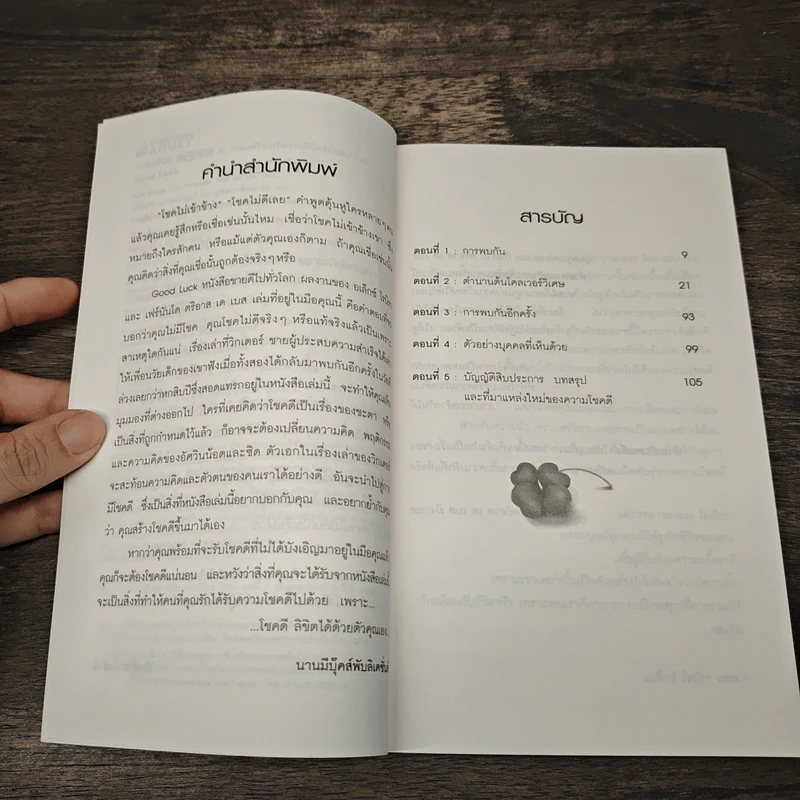 คำนำสำนักพิมพ์
"โชคไม่เข้าข้าง" "โชคไม่ดีเลย" คำพูดคุ้นหูใครหลายๆคน
แล้วคุณเคยรู้สึกหรือเชื่อเช่นนั้นไหม เชื่อว่าโชคไม่เข้าข้างเขา ซึ่ง
หมายถึงใครสักคน หรือแม้แต่ตัวคุณเองก็ตาม ถ้าคุณเชื่อเช่นนั้น
คุณคิดว่าสิ่งที่คุณเชื่อนั้นถูกต้องจริงๆหรือ
Good Luck หนังสือขายดีไปทั่วโลก ผลงานของ อเล็กซ์
และ เฟร์นันโด ตริอาส เด เบส เล่มที่อยู่ในมือคุณนี้ คือคำตอบที่
บอกว่าคุณไม่มีโชค คุณโชคไม่ดีจริงๆ หรือแท้จริงแล้วเป็นเพราะ
สาเหตุใดกันแน่ เรื่องเล่าที่วิกเตอร์ ชายผู้ประสบความสำเร็จได้
ให้เพื่อนวัยเด็กของเขาฟังเมื่อทั้งสองได้กลับมาพบกันอีกครั้งใน
ล่วงเลยกว่าหกสิบปีซึ่งสอดแทรกอยู่ในหนังสือเล่มนี้ จะทำให้คุณ
มุมมองที่ต่างออกไป ใครที่เคยคิดว่าโชคดีเป็นเรื่องของชะตา หรือ
เป็นสิ่งที่ถูกกำหนดไว้แล้ว ก็อาจจะต้องเปลี่ยนความคิด พฤติกรรม
และความคิดของอัศวินน็อตและซิด ตัวเอกในเรื่องเล่าของวิกเตอร์
จะสะท้อนความคิดและตัวตนของคนเราได้อย่างดี อันจะนำไปสู่การ
มีโชคดี ซึ่งเป็นสิ่งที่หนังสือเล่มนี้อยากบอกกับคุณ และอยากย้ำกับคุณ
ว่า คุณสร้างโชคดีขึ้นมาได้เอง
หากว่าคุณพร้อมที่จะรับโชคดีที่ไม่ได้บังเอิญมาอยู่ในมือคุณแล้ว
คุณก็จะต้องโชคดีแน่นอน และหวังว่าสิ่งที่คุณจะได้รับจากหนังสือเล่มนี้
จะเป็นสิ่งที่ทำให้คนที่คุณรักได้รับความโชคดีไปด้วย เพราะ...
...โชคดี ลิขิตได้ด้วยตัวคุณเอง...
นานมีบุ๊คส์พับลิเคชั่นส์
สารบัญ
ตอนที่ 1 : การพบกัน 9
ตอนที่ 2 : ตำนานต้นโคลเวอร์วิเศษ 21
ตอนที่ 3 : การพบกันอีกครั้ง 93
ตอนที่ 4 : ตัวอย่างบุคคลที่เห็นด้วย 99
ตอนที่ 5 : บัญญัติสิบประการ บทสรุป 105
และที่มาแหล่งใหม่ของความโชคดี